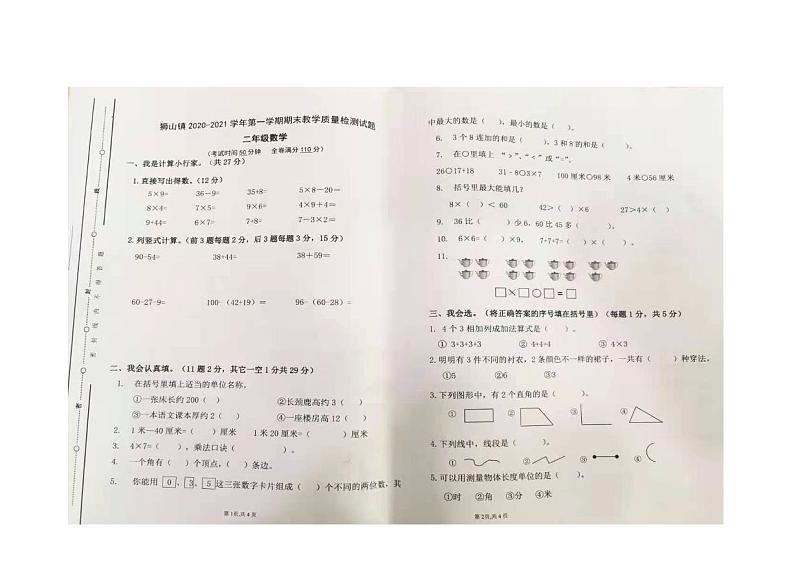 狮山镇 2020-2021 学年第一学期期末教学质量检测试题
二年级数学
（考试时间 50 分钟 全卷满分 110 分）
一、我是计算小行家。（共 27 分）
1.直接写出得数。（12 分）
5×9= 36－9= 35+8= 5×8－20=
8×4= 7×5= 9×6= 4×9＋4=
9+44= 6×7= 7+8= 7－3×2=
2. 列竖式计算。（前 3 题每题 2 分，后 3 题每题 3 分，15 分）
90-54= 38+44= 38＋59=
60-27-9= 100-（42+19）= 96-（60-28）=
二、我会认真填。（11 题 2 分，其它一空 1 分共 29 分）
1. 在括号里填上适当的单位名称。
①一张床长约 200（ ） ②长颈鹿高约 3（ ）
③一本语文课本厚约 2（ ） ④一座楼房高 12（ ）
2. 1 米—40 厘米=（ ）厘米 1 米 20 厘米=（ ）厘米
3. 4×7=（ ），乘法口诀（ ）。
4. 一个角有（ ）个顶点，（ ）条边。
5. 你能用 0、3、5 这三张数字卡片组成（ ）个不同的两位数，其
第 1 页,共 4 页
中最大的数是（ ），最小的数是（ ）。
6. 3 个 8 连加的和是（ ），3 和 8 的和是（ ）。
7. 在〇里填上 “＞”、“＜” 或 “=”。
26〇17+18 31﹣8〇3×7 100 厘米〇98 米 4 米〇56 厘米
8. 括号里最大能填几？
8×（ ）＜ 60 42＞（ ）×6 27＞4×（ ）
9. 36 比（ ）少 6, 60 比 45 多（ ）。
10. 6×6=（ ）×9， 7+7+7=（ ）×（ ）。
11.
□×□〇□=□
三、我会选。（将正确答案的序号填在括号里）（每题 1 分，共 5 分）
1. 4 个 3 相加列成加法算式是（ ）。
① 3+3+3+3 ② 4+4+4 ③ 4×3
2.明明有 3 件不同的衬衣，2 条颜色不一样的裙子，一共有（ ）种穿法。
①5 ②6 ③3
3.下列图形中，有 2 个直角的是（ ）。
① ② ③ ④
4.下列线中，线段是（ ）。
① ② ③ ④
5.可以用测量物体长度单位的是（ ）。
①时 ②角 ③分 ④米
第 2 页,共 4 页